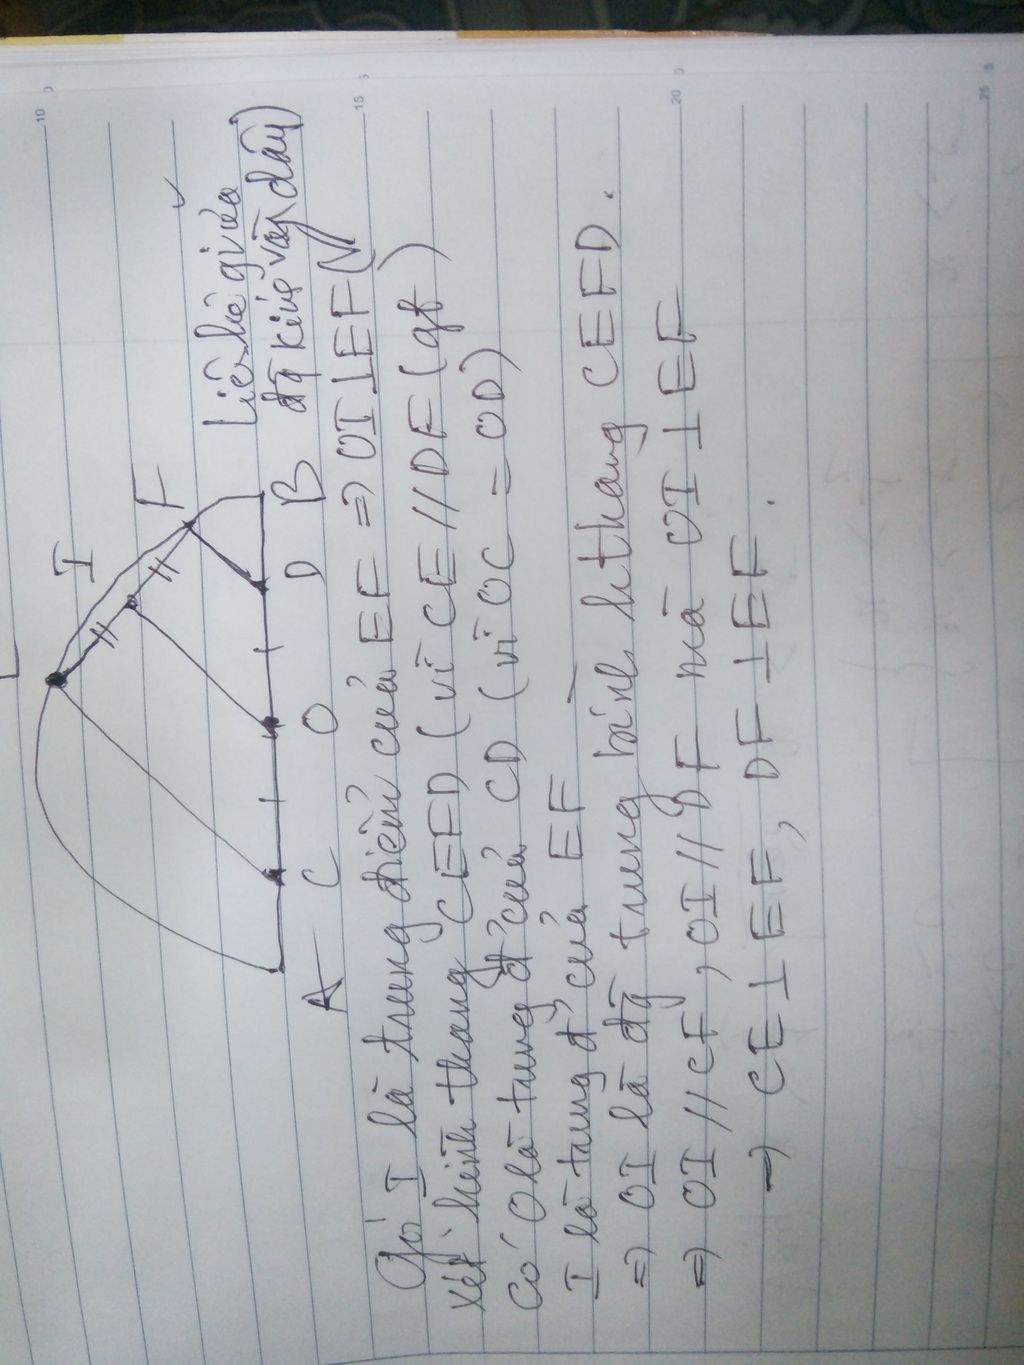 I
F
A C O D B
Liên hệ giữa
đg kính và dây)
Gọi I là trung điểm của EF => OI⊥EF (
Xét hình thang CEFD (vì CE//DF (gt)
Có O là trung đ' của CD (vì OC = OD)
I là trung đ' của EF
=> OI là đg trung bình hthang CEFD.
=> OI // CF, OI // DF mà OI ⊥ EF
=> CE ⊥ EF, DF ⊥ EF.
10
15
20
25